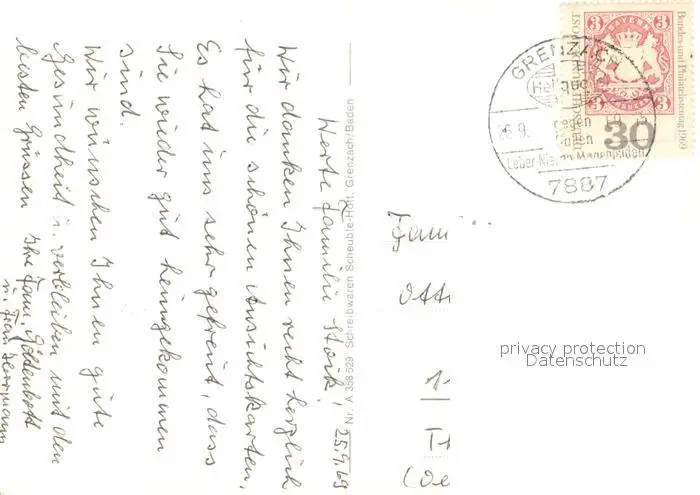 25.9.69
Werte Familie Stork!
Wir danken Ihnen recht herzlich
für die schönen Ansichtskarten.
Es hat uns sehr gefreut, dass
Sie wieder gut heimgekommen
sind.
Wir wünschen Ihnen gute
Gesundheit u. verbleiben mit den
besten Grüssen Ihre Fam.
u. Frau Herrmann
Nr. A 358 529 Schreibwaren Scheuble-Hött, Grenzach/Baden
GRENZACH
Heilquelle
26.9.
gegen
Leber-Nieren-Magenleiden
7887
3 BAYERN 3
3 3
30
DEUTSCHE BUNDESPOST
Bundes- und Philatelistentag 1969
Fam
Otto
privacy protection
Datenschutz